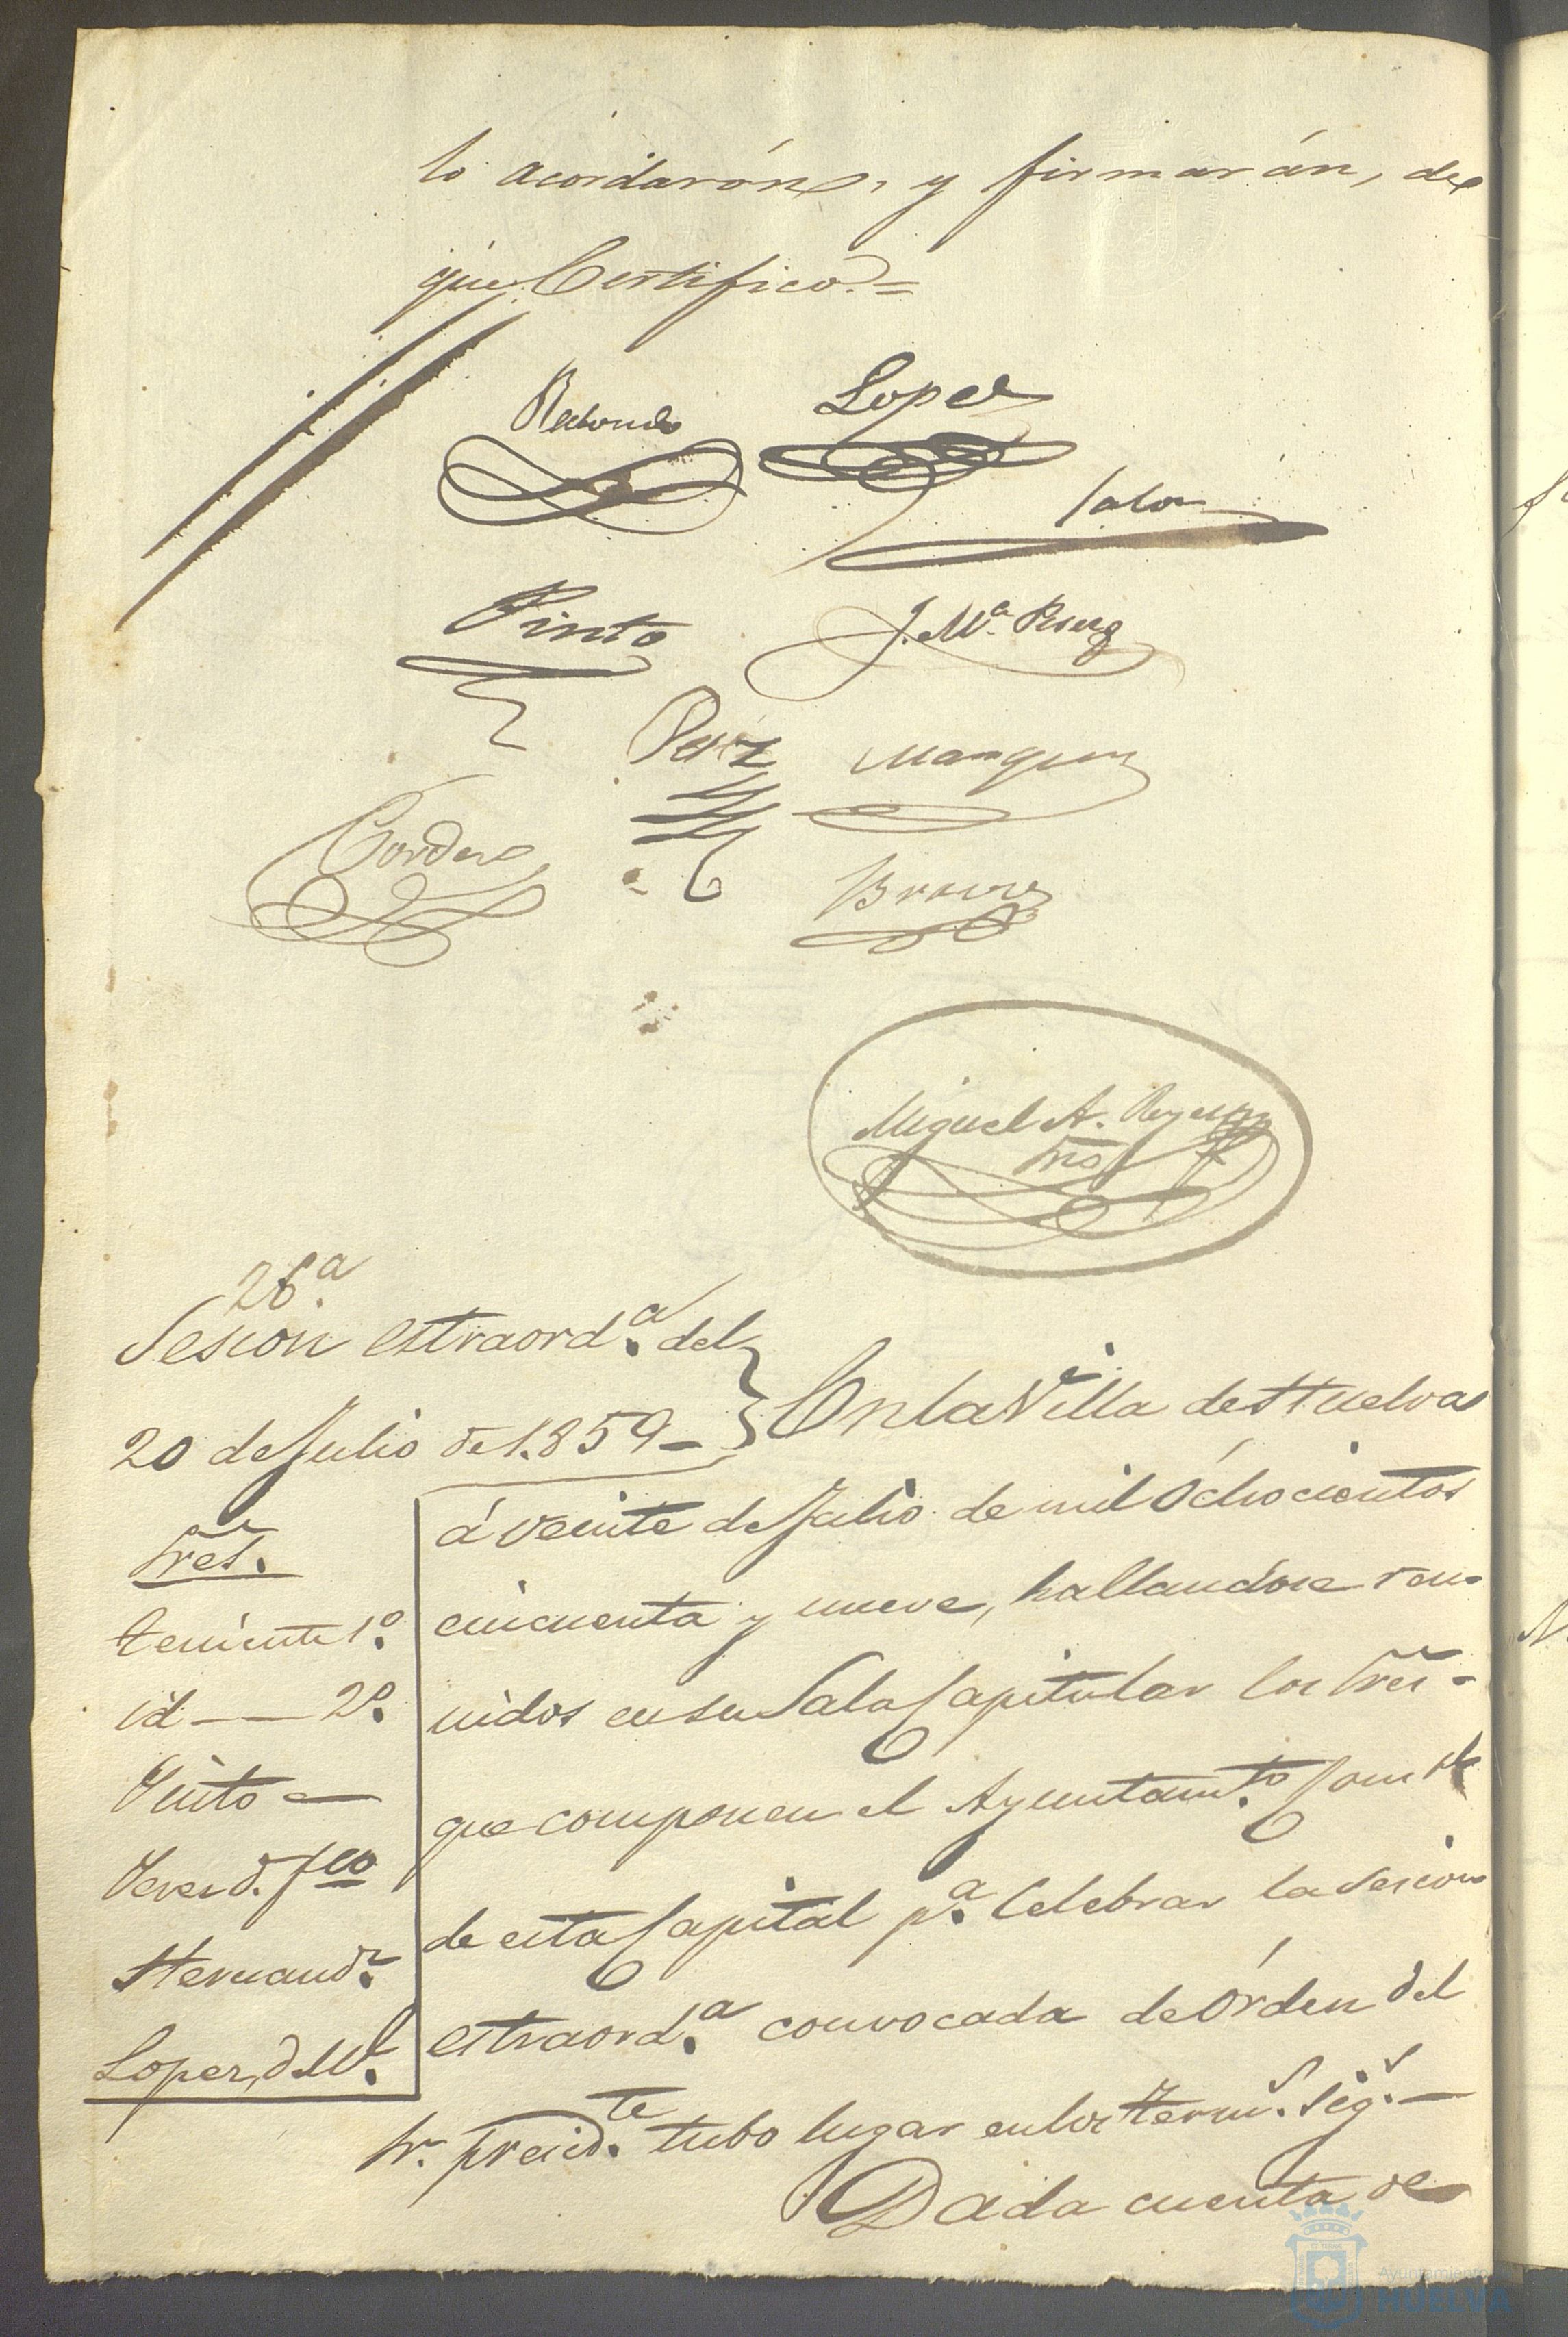 lo acordarón, y firmarán, de
que Certifico.=
Redondo Lopez
Jalon
Pinto J. Mª. Perez
Perez Marquez
Cordero
Miguel A. Reyes
Srio
26ª
Sesion estraord.ª del
20 de Julio de 1.859 = } En la Villa de Huelva
á veinte de Julio de mil ochocientos
cincuenta y nueve, hallandose reu-
nidos en su Sala Capitular los Sres.
que componen el Ayuntam.to Const.l
de esta Capital p.ª Celebrar la sesion
estraord.ª convocada de órden del
Sr. Presid.te tubo lugar en los term.s sig.s =
Dada cuenta de
Sres.
teniente 1º.
id — 2º.
Pinto =
Perez d. Fco
Hernand.z
Lopez, d. M.l
Ayuntamiento de
HUELVA